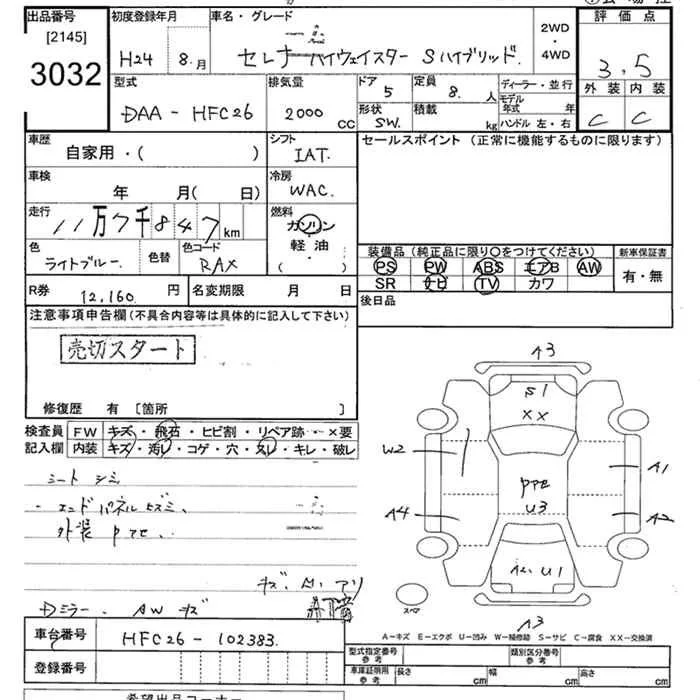 出品番号 初度登録年月 車名・グレード 評価点
[2145] 2WD・4WD
3032 H24 8.月 セレナ ハイウェイスター Sハイブリッド. 3.5
型式 排気量 ドア 定員 ディーラー・並行 外装 内装
DAA-HFC26 2000 CC 5 8. 人 モデル年式 年 C C
形状 SW. 積載 kg ハンドル 左・右
車歴 シフト セールスポイント (正常に機能するものに限ります)
自家用・( ) IAT.
車検 冷房
年 月( 日) WAC.
走行 燃料
11万7千847km ガソリン
色 色替 色コード 軽油・
ライトブルー. RAX ( )
装備品 (純正品に限り○をつけてください) 新車保証書
PS PW ABS エアB AW 有・無
SR ナビ TV カワ
R券 12,160. 円 名変期限 月 日 後日品
注意事項申告欄(不具合内容等は具体的に記入して下さい)
売切スタート
修復歴 有 [箇所 ]
検査員 FW キズ・飛石・ヒビ割・リペア跡・×要
記入欄 内装 キズ・汚レ・コゲ・穴・スレ・キレ・破レ
シート シミ
・エンドパネルヒズミ、
外装 Pee.
キズ. アリ
Dミラー. AW キズ
A3
S1
XX
W2
A1
PPE
U3
A4
A2
U1
スペア
A3
A-キズ E-エクボ U-凹み W-補修跡 S-サビ C-腐食 XX-交換済
車台番号 HFC26-102383.
型式指定番号 参考 類別区分番号 参考
登録番号 車庫証明用 参考 長さ cm 幅 cm 高さ cm
希望出品コーナー